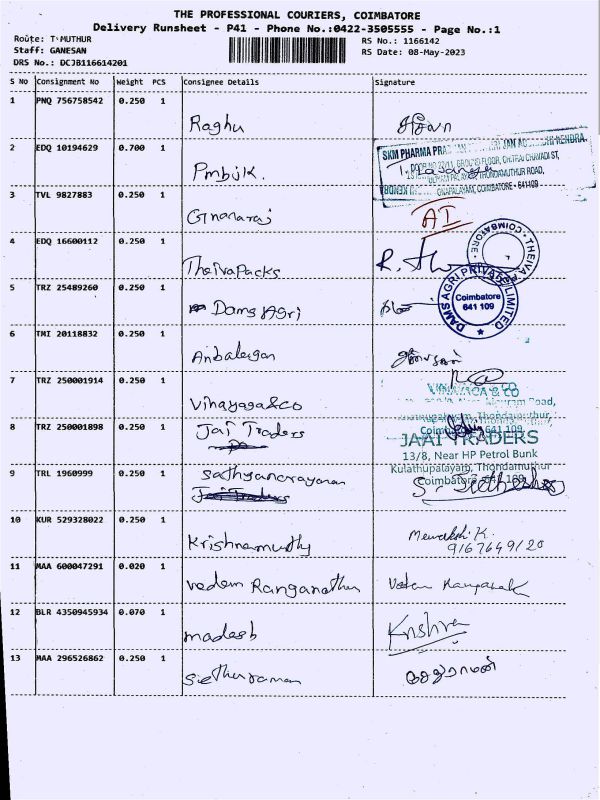 THE PROFESSIONAL COURIERS, COIMBATORE
Delivery Runsheet - P41 - Phone No.:0422-3505555 - Page No.:1
Route: T MUTHUR
RS No.: 1166142
Staff: GANESAN
RS Date: 08-May-2023
DRS No.: DCJB116614201
S No Consignment No Weight PCS Consignee Details Signature
1 PNQ 756758542 0.250 1 Raghu
2 EDQ 10194629 0.700 1 Pmbjk.
SKM PHARMA
GROUND FLOOR, CHITRAI CHAVADI ST,
THONDAMUTHUR ROAD,
COIMBATORE - 641109
3 TVL 9827883 0.250 1 Gnanaraj
AI
4 EDQ 16600112 0.250 1 TheivaPacks
THEIVA
COIMBATORE
5 TRZ 25489260 0.250 1 Dams Agri
DAMS AGRI PRIVATE LIMITED
Coimbatore
641 109
6 TMI 20118832 0.250 1 Anbalagan
7 TRZ 250001914 0.250 1 Vinayaga&co
VINAYAGA & CO
Road,
Thondamuthur,
641 109
8 TRZ 250001898 0.250 1 Jai Traders
JAAI TRADERS
13/8, Near HP Petrol Bunk
Kulathupalayam, Thondamuthur
Coimbatore 641 109
9 TRL 1960999 0.250 1 Sathyanarayanan
Jai Traders
10 KUR 529328022 0.250 1 Krishnamurthy
K.
9167649120
11 MAA 600047291 0.020 1 vedam Ranganathan
12 BLR 4350945934 0.070 1 madesh
Krishna
13 MAA 296526862 0.250 1 Sethuraman
சேதுராமன்